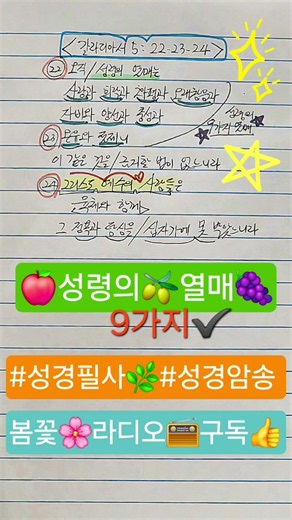 <갈라디아서 5:22-23-24>
㉒ 오직/성령의 열매는
사랑과 희락과 화평과 오래참음과
자비와 양선과 충성과
성령의
9가지 열매
㉓ 온유와 절제니
이 같은 것을/금지할 법이 없느니라
㉔ 그리스도 예수의 사람들은
육체와 함께
그 정욕과 탐심을/십자가에 못 박았느니라
🍎성령의🫒열매🍇
9가지✔
#성경필사🌿#성경암송
봄꽃🌸라디오📻구독👍